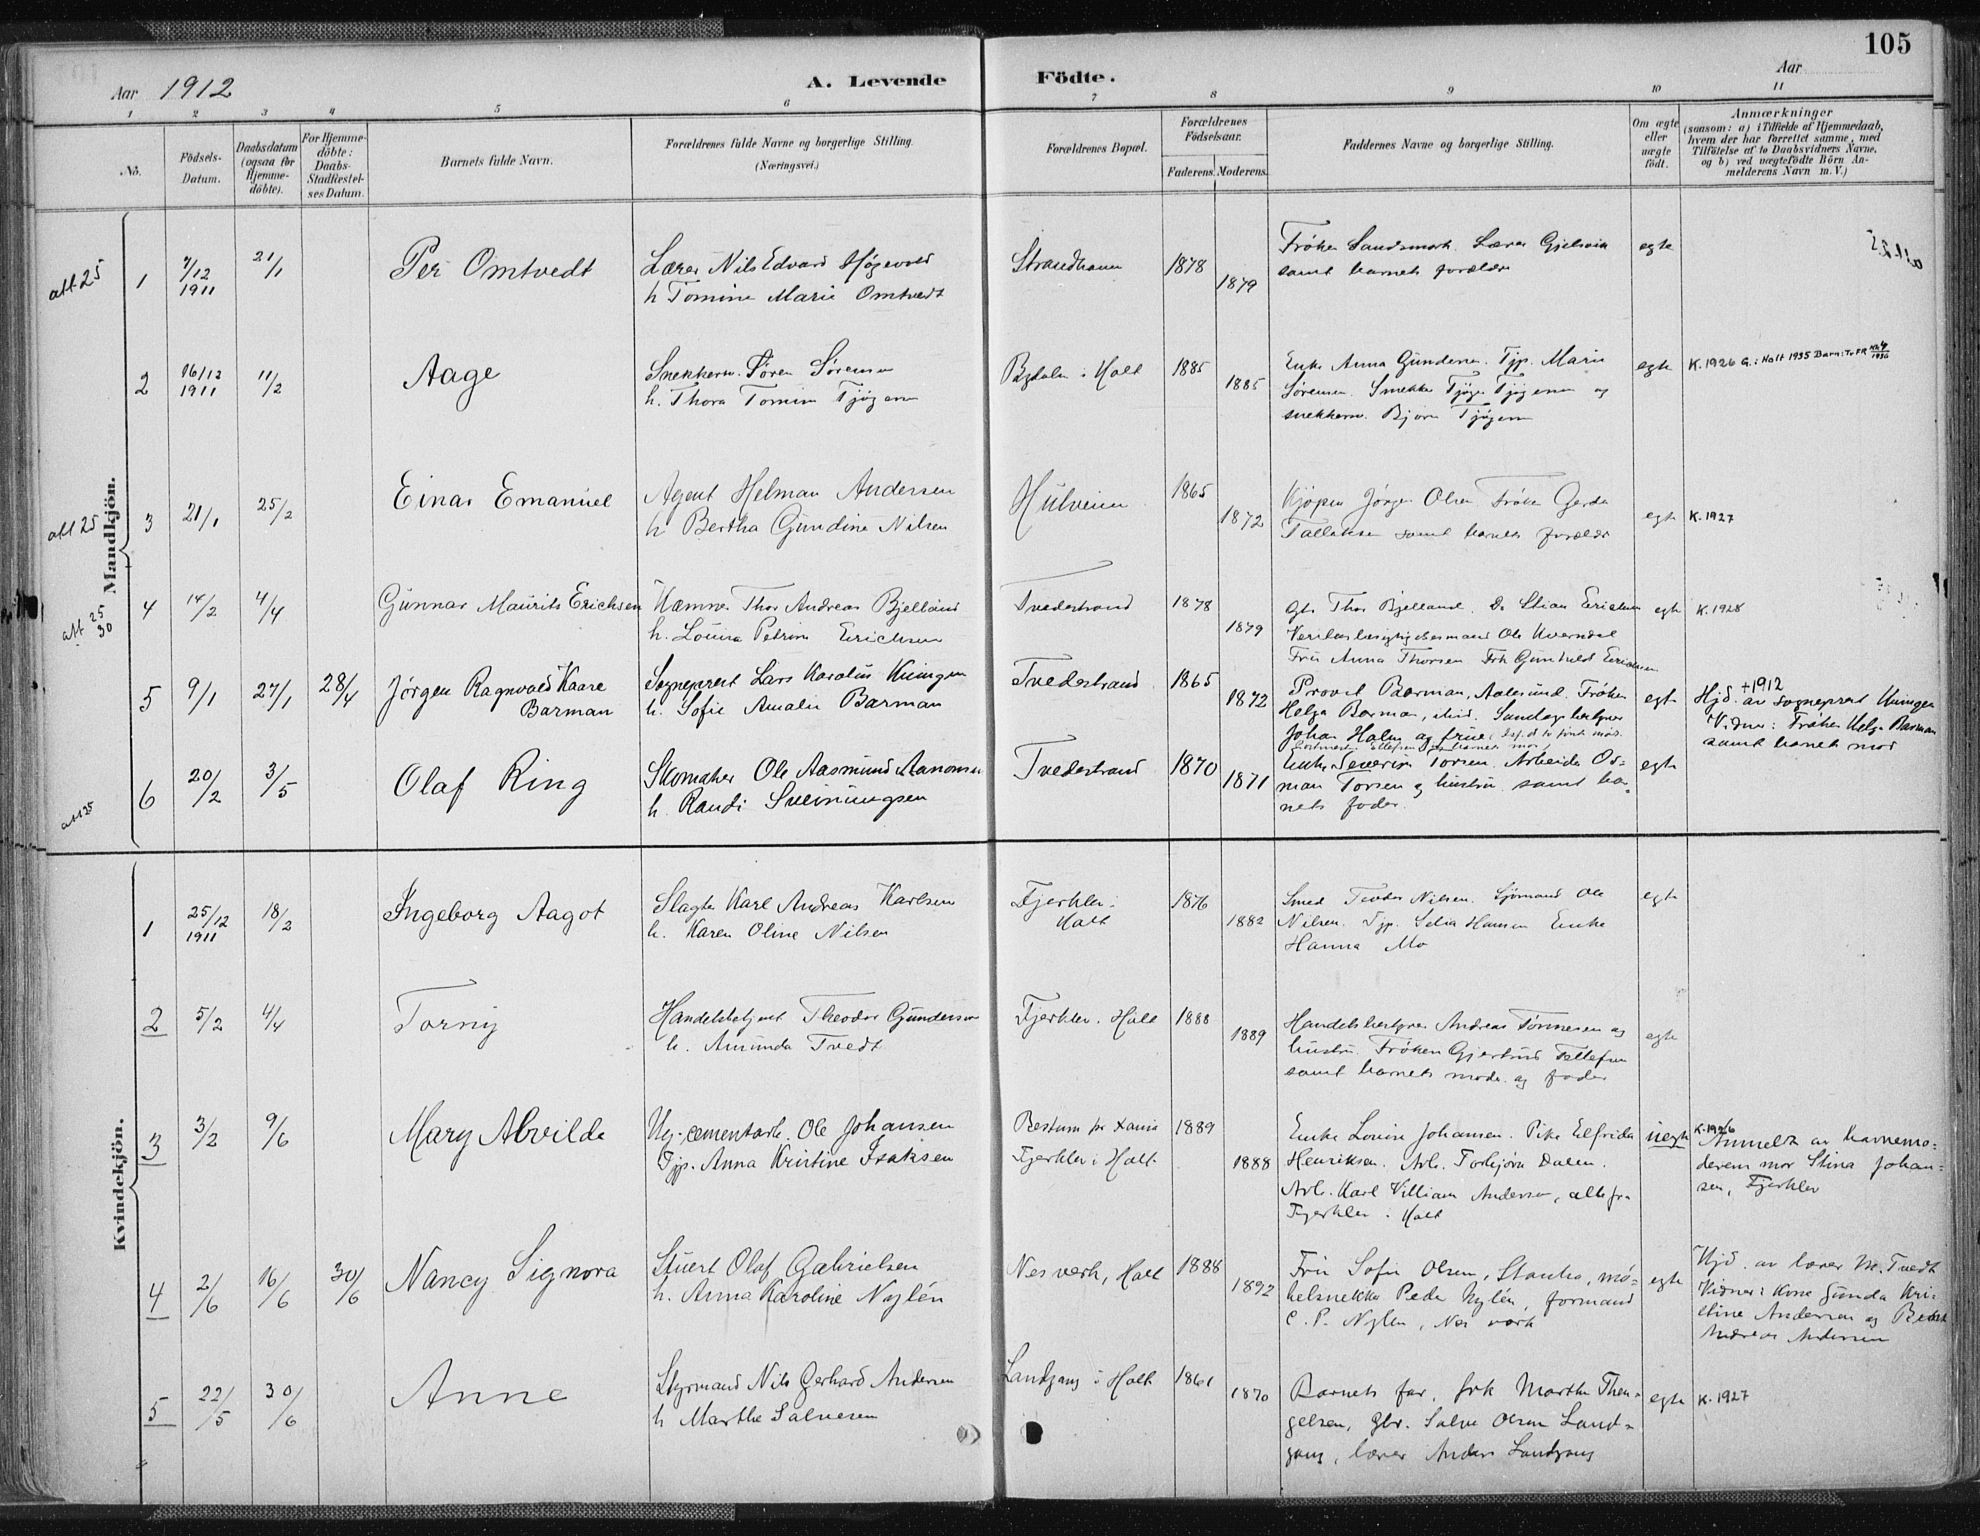 105
Aar 1912
A. Levende Födte.
Aar
1 2 3 4 5 6 7 8 9 10 11
No.
Födsels-Datum.
Daabsdatum (ogsaa for Hjemmedöbte).
For Hjemmedöbte: Daabs-Stadfæstelses Datum.
Barnets fulde Navn.
Forældrenes fulde Navne og borgerlige Stilling. (Næringsvei.)
Forældrenes Bopæl.
Forældrenes Födselsaar. Faderens. Moderens.
Faddernes Navne og borgerlige Stilling.
Om ægte eller uægte födt.
Anmærkninger (saasom: a) i Tilfælde af Hjemmedaab, hvem der har forrettet samme, med Tilföielse af to Daabsvidners Navne, og b) ved uægtefödte Börn Anmelderens Navn m. V.)
Mandkjön.
att 25 1 7/12 1911 21/1 Per Omtvedt
Lærer Nils Edvard Høgevold
h Tomine Marie Omtvedt
Strandhaven 1878 1879
Frøken Sandsmark. Lærer Gjelsvik
samt barnets forældre
egte
2 16/12 1911 11/2 Aage
Snekkerm. Søren Sørensen
h. Thora Tomine Tjøgersen
i Holt 1885 1885
Enke Anna Gundersen. Tjp. Marie
Sørensen. Snekker Tjøger Tjøgersen og
snekkerm. Bjorn Tjøgersen
egte K. 1926 G. i Holt 1935
att 25 3 21/1 25/2 Einar Emanuel
Agent Helman Andersen
h Bertha Gundine Nilsen
Hulveien 1865 1872
Kjøpm Jörgen Olsen Frøken Gerda
Tallaksen samt barnets forældre
egte K. 1927
att 25 30 4 14/2 4/4 Gunnar Maurits Erichsen
Kæmner Thor Andreas Bjelland
h. Louisa Petrine Erichsen
Tvedestrand 1878 1879
Thor Bjelland. Do Stian Erichsen
Ole Kverndal
Fru Anna Thorsen Frk Gunhild Erichsen
egte K. 1928
5 9/1 27/1 28/4 Jörgen Ragnvald Kaare Barman
Sogneprest Lars Karolus Kuingen
h. Sofie Amalie Barman
Tvedestrand 1865 1872
Provst Barman, Aalesund. Frøken
Helga Barman, ibid. Sandags
Johan Holm og frue
egte
+1912
Hjd. av sogneprest Kuingen
Vidner: Frøken Helga Barman
samt barnets mor
att 25 6 20/2 3/5 Olaf Ring
Skomaker Ole Aasmund Aanonsen
h. Randi Sveinungsen
Tvedestrand 1870 1871
Enke Severine Torsen. Arbeider Os-
man Torsen og hustru samt bar-
nets fader.
egte
Kvindekjön.
1 25/12 1911 18/2 Ingeborg Aagot
Slagter Karl Andreas Karlsen
h. Karen Oline Nilsen
Fjerkler i Holt 1876 1882
Smed Teodor Nilsen. Sjømand Ole
Nilsen. Tjp. Selia Hansen Enke
Hanna Mo
egte
2 5/2 4/4 Torny
Handelsbetjent Theodor Gundersen
h. Amunda Tvedt
Fjerkler i Holt 1888 1889
Handelsbestyrer Andreas Tönnesen og
hustru. Frøken Gjertrud Tellefsen
samt barnets moder og fader
egte
3 3/2 9/6 Mary Alvilde
Ug. cementarb. Ole Johansen
Tjp. Anna Kristine Isaksen
Bestum pr Xania
Fjerkler i Holt 1889 1888
Enke Louise Johansen. Pike Elfrida
Henriksen. Arb. Torbjörn Dalen.
Arb. Karl Villiam Andersen, alle fra
Fjerkler i Holt
uegte K. 1926
Anmeldt av barnemo-
derens mor Stina Johan-
sen, Fjerkler
4 2/6 16/6 30/6 Nancy Signora
Stuert Olaf Gabrielsen
h. Anna Karoline Nylén
Nes verk, Holt 1888 1892
Fru Sofie Olsen, Stanbo, mö-
belsnekker Peder Nylén, formand
C. P. Nylén, Nes verk
egte
Hjd. av lærer M. Tvedt
Vidner: Kone Gunda Kri-
stine Andersen og Bernt
Andreas Andersen
5 22/5 30/6 Anne
Styrmand Nils Gerhard Andersen
h Marthe Salvesen
Landgang i Holt 1861 1870
Barnets far, frk Marthe Then-
gelsen, gbr. Salve Olsen Land-
gang, lærer Anders Landgang
egte K. 1927